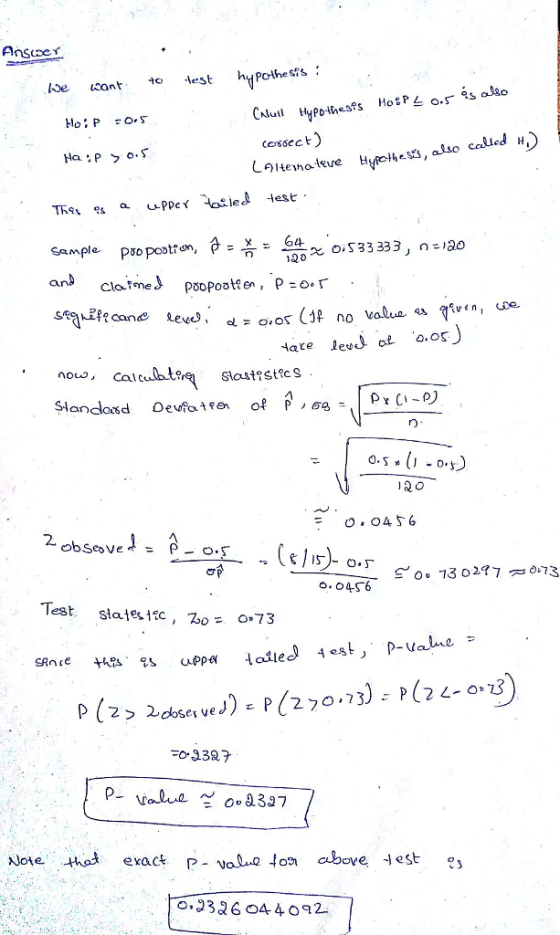 Answer
We want to test hypothesis :
Ho : P = 0.5 (Null Hypothesis Ho : P ≤ 0.5 is also correct)
Ha : P > 0.5 (Alternateve Hypothesis, also called H₁)
This is a upper tailed test.
Sample propostion, p̂ = x/n = 64/120 ≈ 0.533333, n = 120
and claimed propostion, P = 0.5
significance level, α = 0.05 (If no value is given, we
take level at 0.05)
now, calculating stastistics.
Standard Deviation of p̂, σp̂ = √(P×(1-P)/n)
= √(0.5*(1-0.5)/120)
≅ 0.0456
Z observed = (p̂ - 0.5)/σp̂ = ((8/15) - 0.5)/0.0456 ≅ 0.730297 ≈ 0.73
Test statestic, Zo = 0.73
since this is upper tailed test, P-value =
P(Z > Zobserved) = P(Z > 0.73) = P(Z < -0.73)
= 0.2327
P-value ≅ 0.2327
Note that exact P-value for above test is
0.2326044092